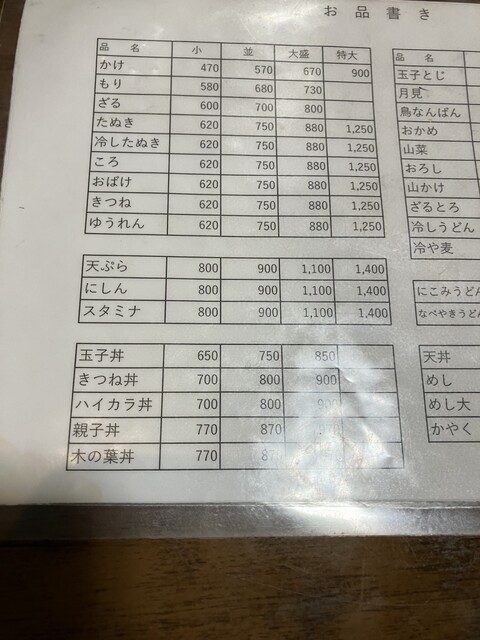 お品書き
品 名 小 並 大盛 特大
かけ 470 570 670 900
もり 580 680 730
ざる 600 700 800
たぬき 620 750 880 1,250
冷したぬき 620 750 880 1,250
ころ 620 750 880 1,250
おばけ 620 750 880 1,250
きつね 620 750 880 1,250
ゆうれん 620 750 880 1,250
天ぷら 800 900 1,100 1,400
にしん 800 900 1,100 1,400
スタミナ 800 900 1,100 1,400
玉子丼 650 750 850
きつね丼 700 800 900
ハイカラ丼 700 800 900
親子丼 770 870
木の葉丼 770
品 名
玉子とじ
月見
鳥なんばん
おかめ
山菜
おろし
山かけ
ざるとろ
冷しうどん
冷や麦
にこみうどん
なべやきうどん
天丼
めし
めし大
かやく